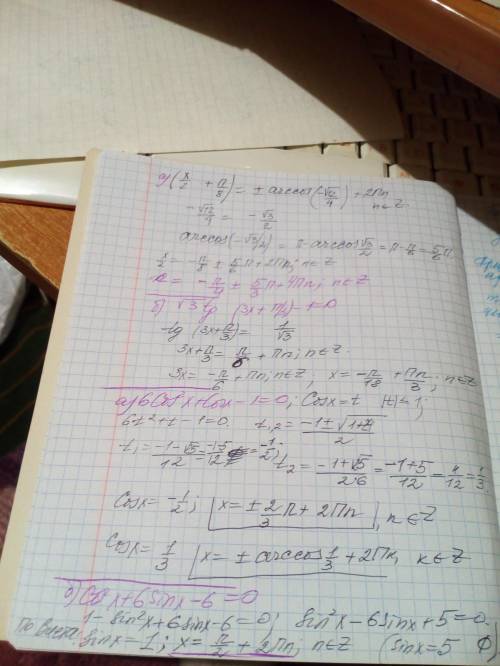 a) (x/2 + π/8) = ± arccos(-√12/4) + 2πn
n∈Z
-√12/4 = -√3/2
arccos(-√3/2) = π - arccos √3/2 = π - π/6 = 5/6 π
x/2 = -π/8 ± 5/6 π + 2πn; n∈Z
x = -π/4 ± 5/3 π + 4πn; n∈Z
б) √3 tg (3x + π/3) - 1 = 0
tg (3x + π/3) = 1/√3
3x + π/3 = π/6 + πn; n∈Z.
3x = -π/6 + πn, n∈Z, x = -π/18 + πn/3; n∈Z
a) 6cos²x + cosx - 1 = 0; cosx = t |t| < 1;
6t² + t - 1 = 0. t1,2 =
t1 = = -1/2; t2 = = (-1+5)/12 = 4/12 = 1/3
Cosx = -1/2; x = ± 2/3 π + 2πn, n∈Z
Cosx = 1/3 x = ± arccos 1/3 + 2πk, k∈Z
б) Cos²x + 6sinx - 6 = 0
1 - sin²x + 6sinx - 6 = 0; sin²x - 6sinx + 5 = 0.
По sinx = 1; x = π/2 + 2πn, n∈Z (sinx = 5 ∅